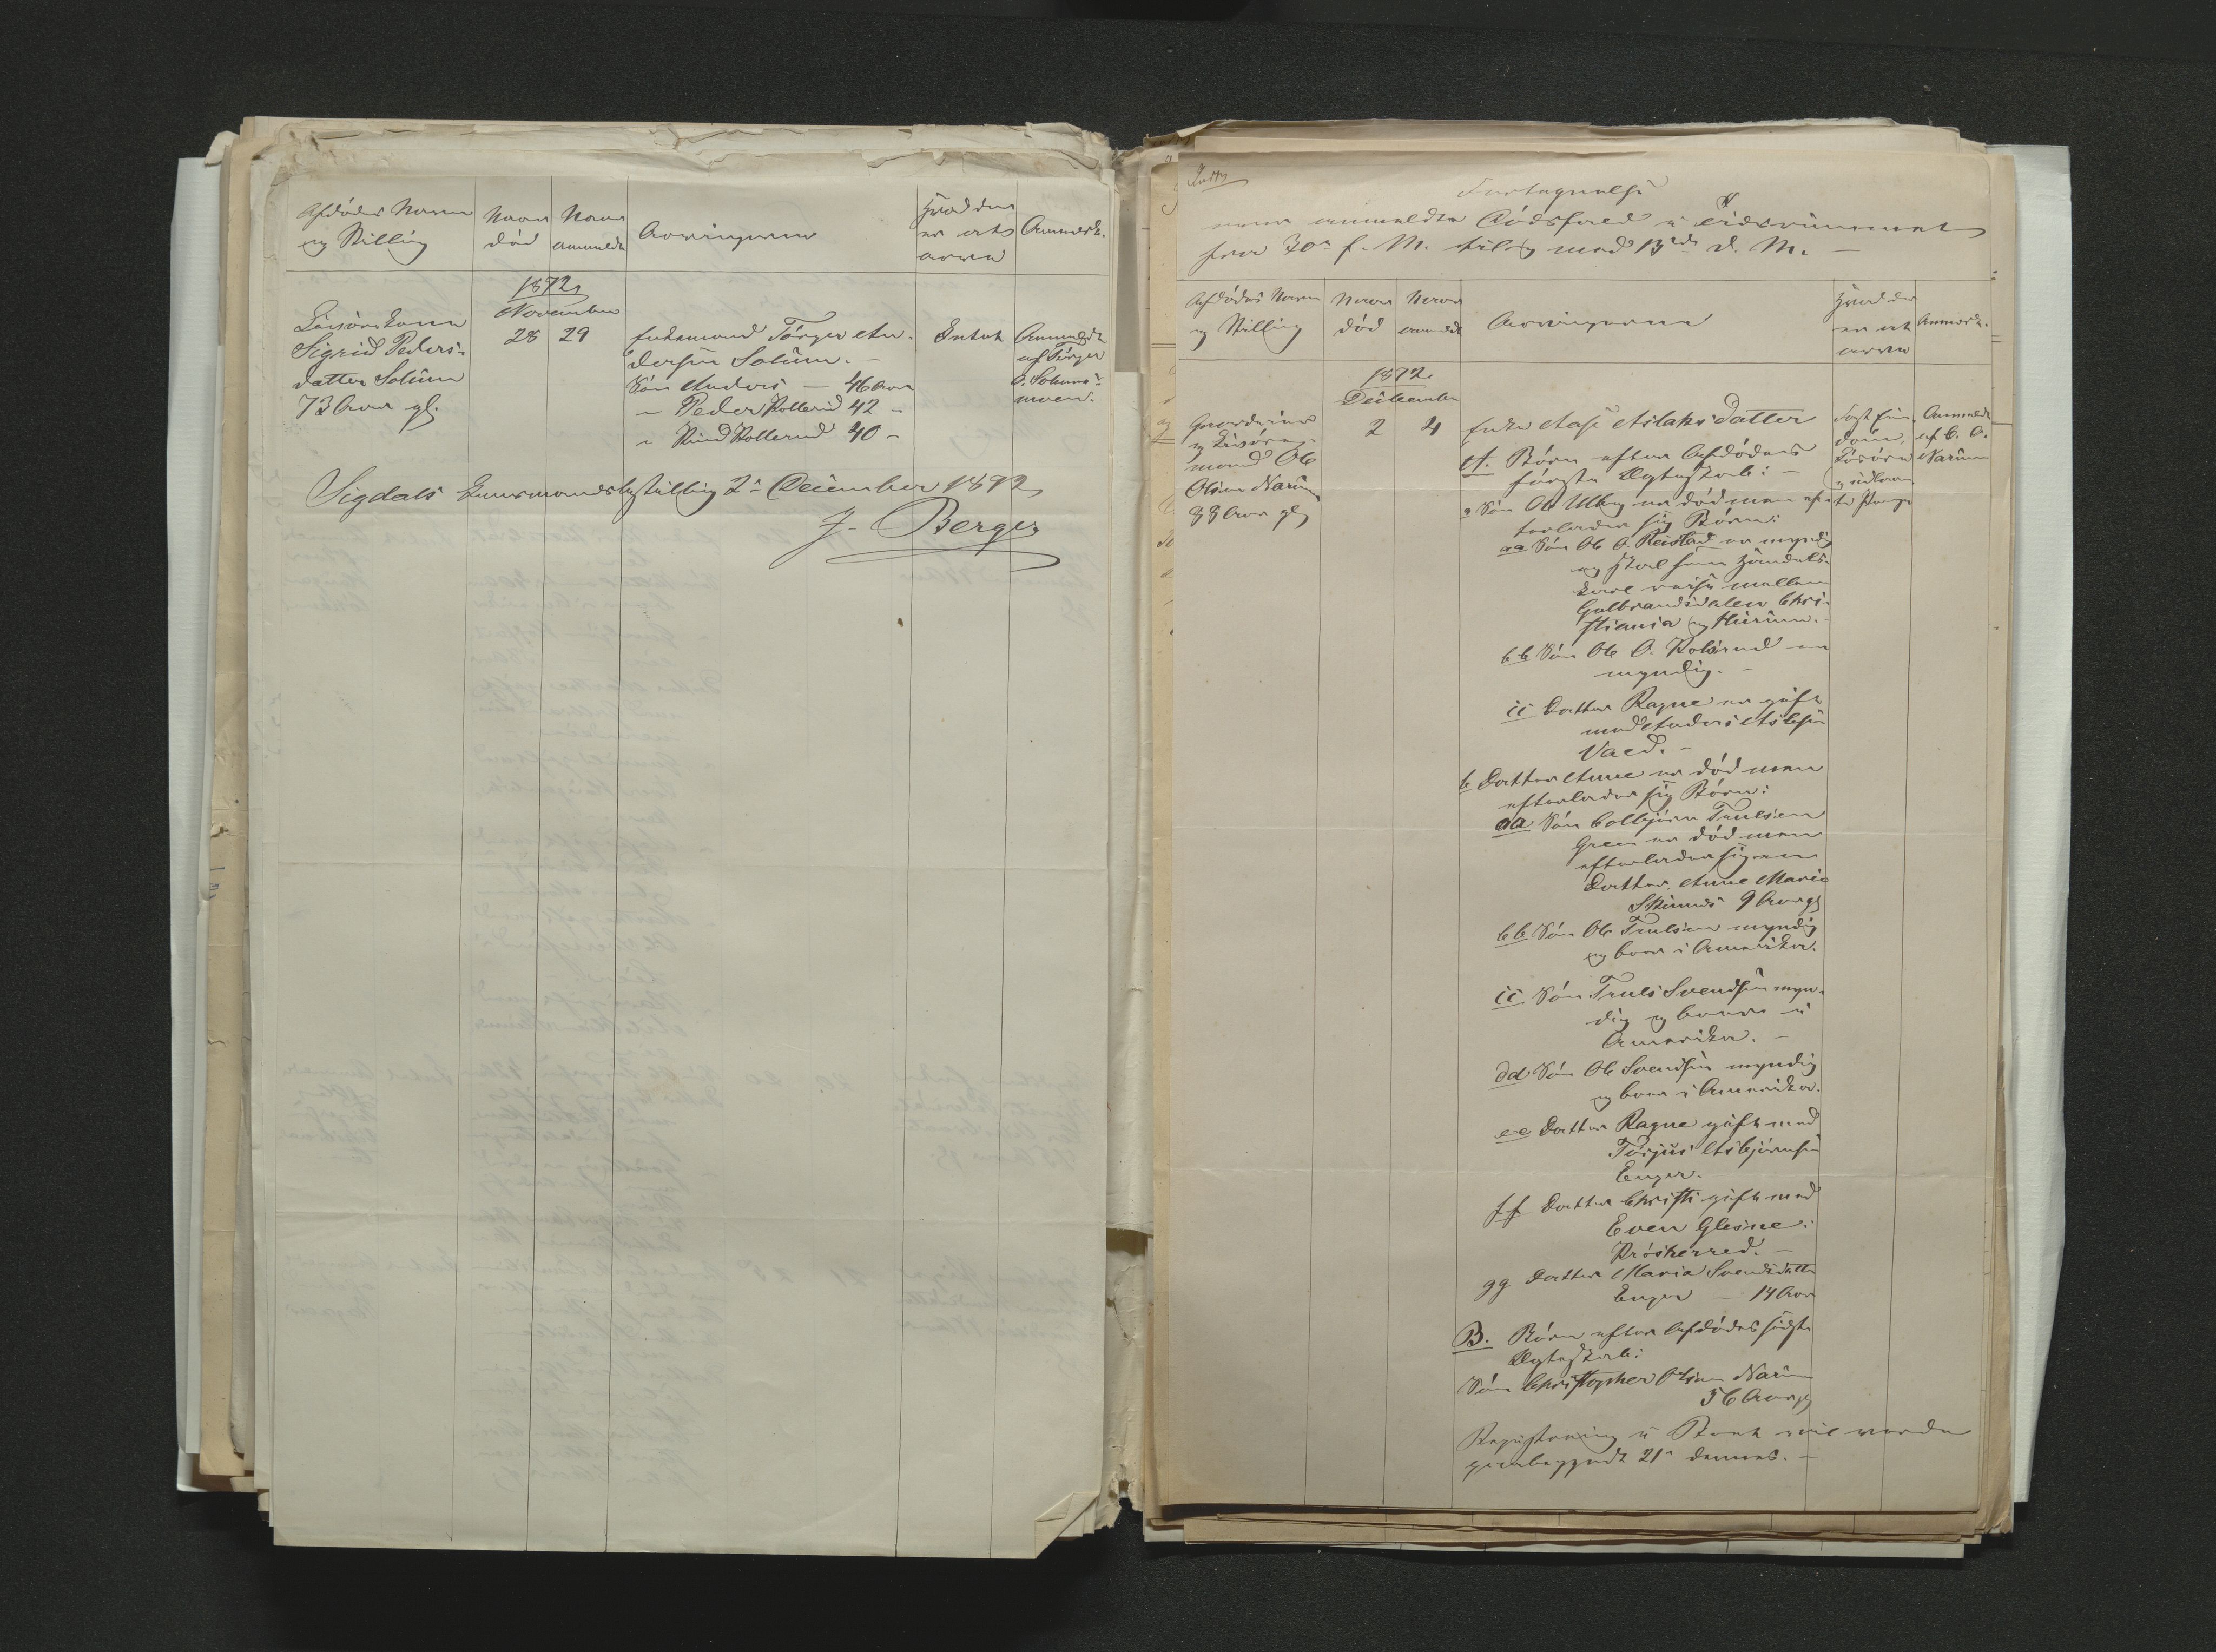 Afdødes Navn
og Stilling
Naar
død
Naar
anmeldt
Arvingerne
Hvad der
er at
arve
Anmærk.
1872
November
Sigrid Peders-
datter Solum
73 Aar gl.
28
29
Enkemand Torger An-
dersen Solum. -
Søn Anders - 46 Aar
" Peder Kollerud 42 -
" Knud Kollerud 40 -
Intet
Anmeldt
af Torger
moen.
Sigdals Lensmandsbestilling 2 December 1872
J. Berger
Fortegnelse
over anmeldte Dødsfald i Tidsrummet
fra 30 f. M. til og med 13de d. M. -
Afdødes Navn
og Stilling
Naar
død
Naar
anmeldt
Arvingerne
Hvad der
er at
arve
Anmærk.
1872
December
Gaardeier
og
mand Ole
Olsen Narum
Aar gl
2
4
Enke Aase Aslaksdatter
A. Børn efter Afdødes
første Ægteskab: -
a Søn Ole er død men ef-
terlader sig Børn:
aa Søn Ole O. Reistad er myndig
og skal som Handels-
karl reise mellem
Gulbrandsdalen Chri-
stiania og Hurum. -
bb Søn Ole O. er
myndig. -
cc Datter Ragne er gift
med Anders
Vaed. -
b Datter Anne er død men
efterlader sig Børn:
aa Søn Colbjørn Trulsen
Green er død men
efterlader sig en
Datter Anne Marie
9 Aar gl
bb Søn Ole Trulsen myndig
og boer i Amerika.
cc Søn Truls Svendsen myn-
dig og boer i
Amerika. -
dd Søn Ole Svendsen myndig
og boer i Amerika.
ee Datter Ragne gift med
Torjus Asbjørnsen
Enger.
ff Datter Christi gift med
Even Glesne i
Krødsherred. -
gg Datter Maria Svendsdatter
Enger - 14 Aar
B. Børn efter Afdødes sidste
Ægteskab:
Søn Christopher Olsen Narum
36 Aar gl
Fast Eien-
dom,
Løsøre
og udlaan-
te Penge
Anmeldt
af C. O.
Narum
Registrering i Boet vil vorde
paabegyndt 21 dennes. -